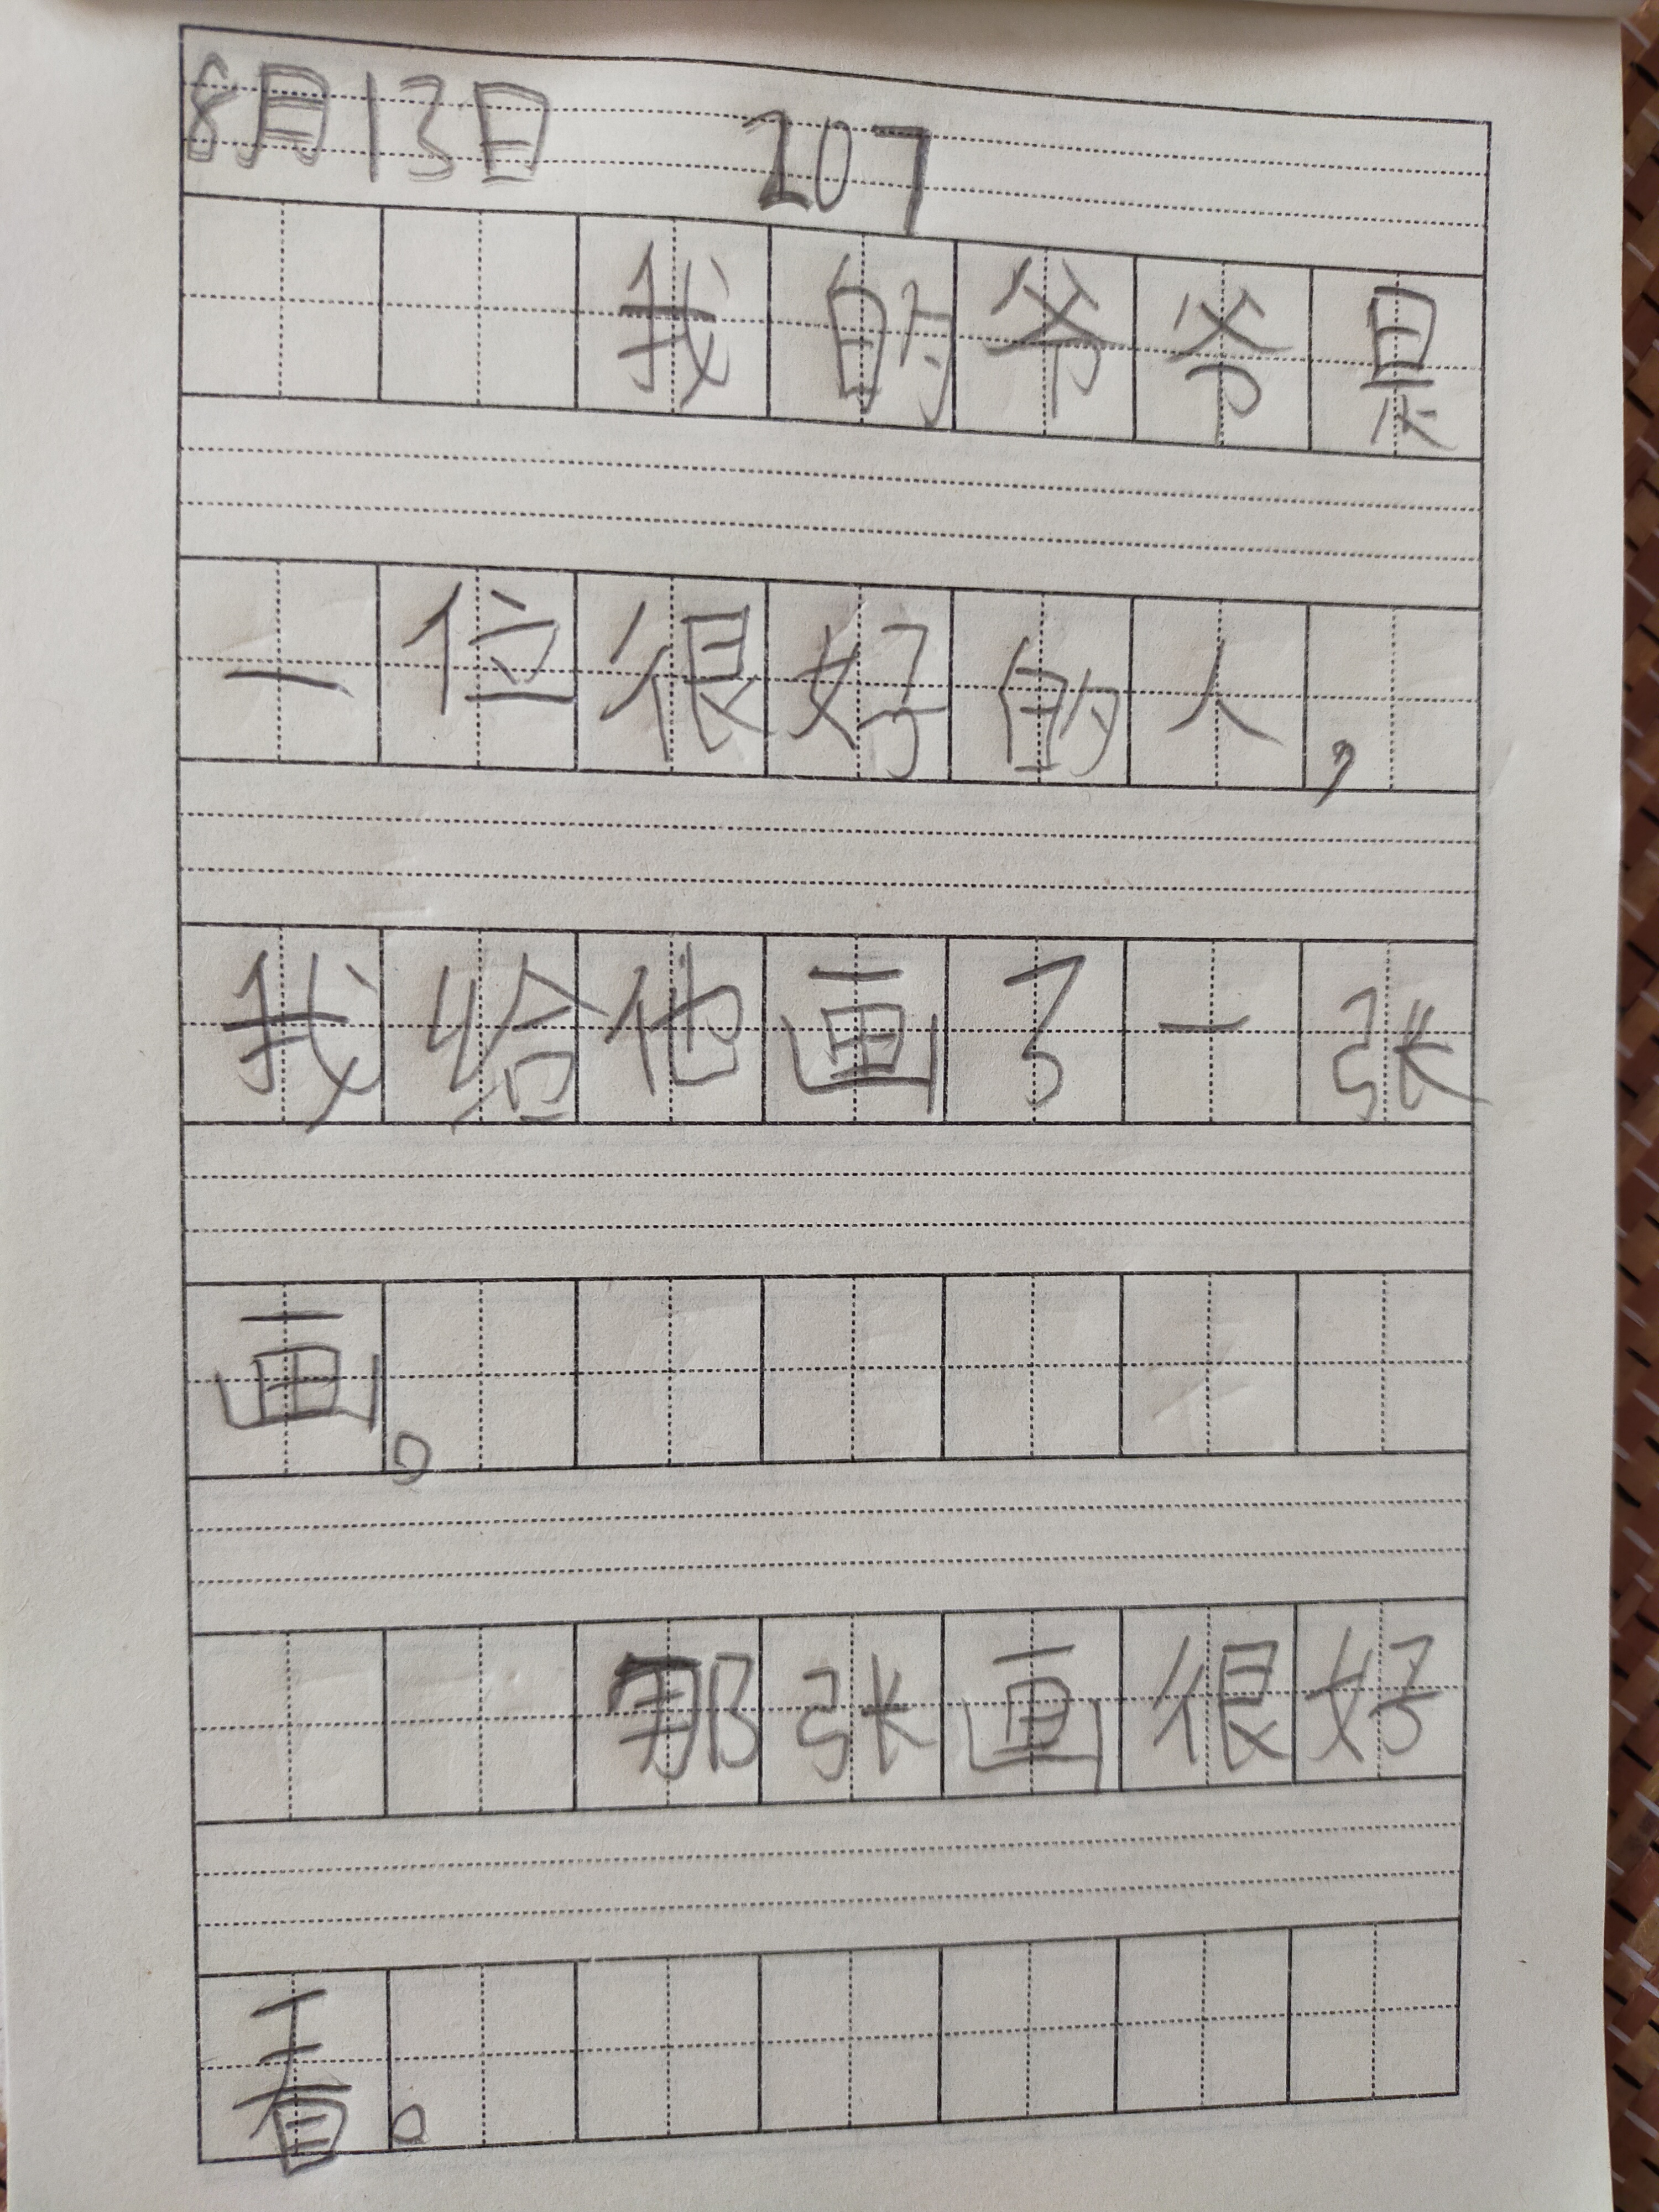 8月13日 207
我的爷爷是
一位很好的人，
我给他画了一张
画。
那张画很好
看。